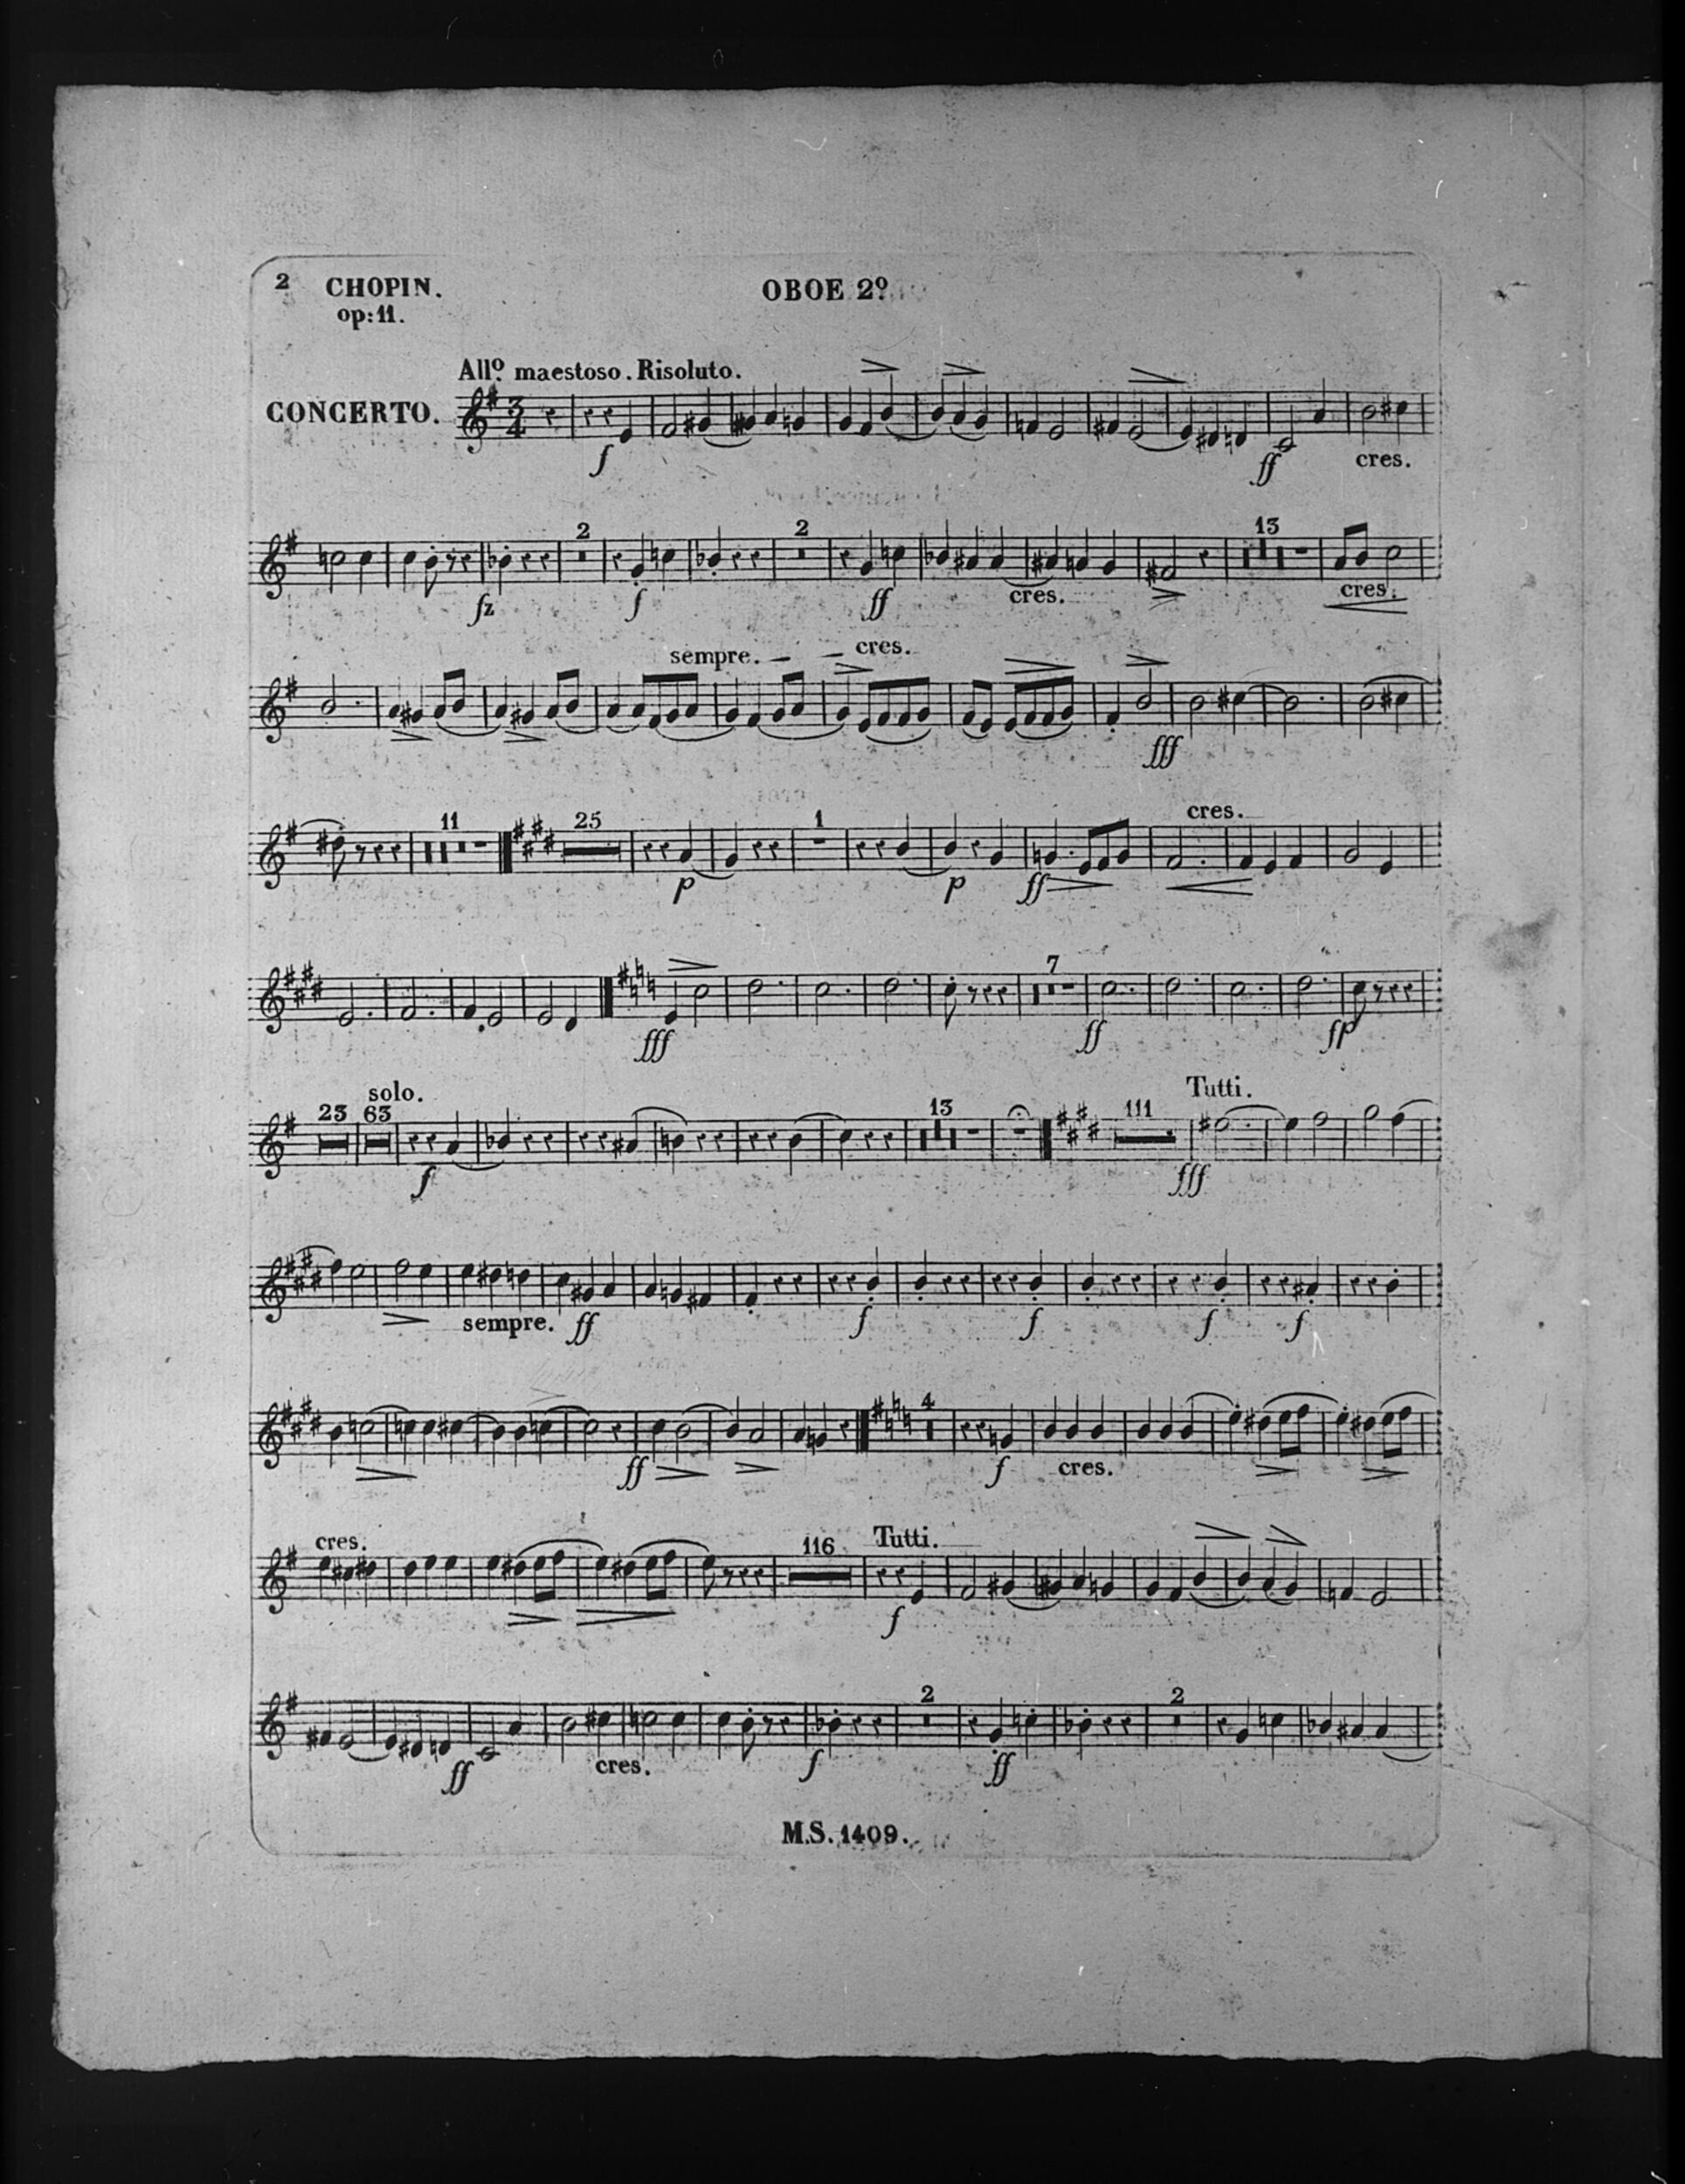 2 CHOPIN. OBOE 2º
op:11.
Allº maestoso. Risoluto.
CONCERTO.
3
4
f ff cres.
2 2 13
fz f ff cres. cres.
sempre. — — cres.
fff
11 25 1 cres.
p p ff
7
fff ff fp
solo. Tutti.
23 63 13 111
f fff
sempre. ff f f f f
4
ff f cres.
cres. 116 Tutti.
f
2 2
ff cres. f ff
M.S. 1409.